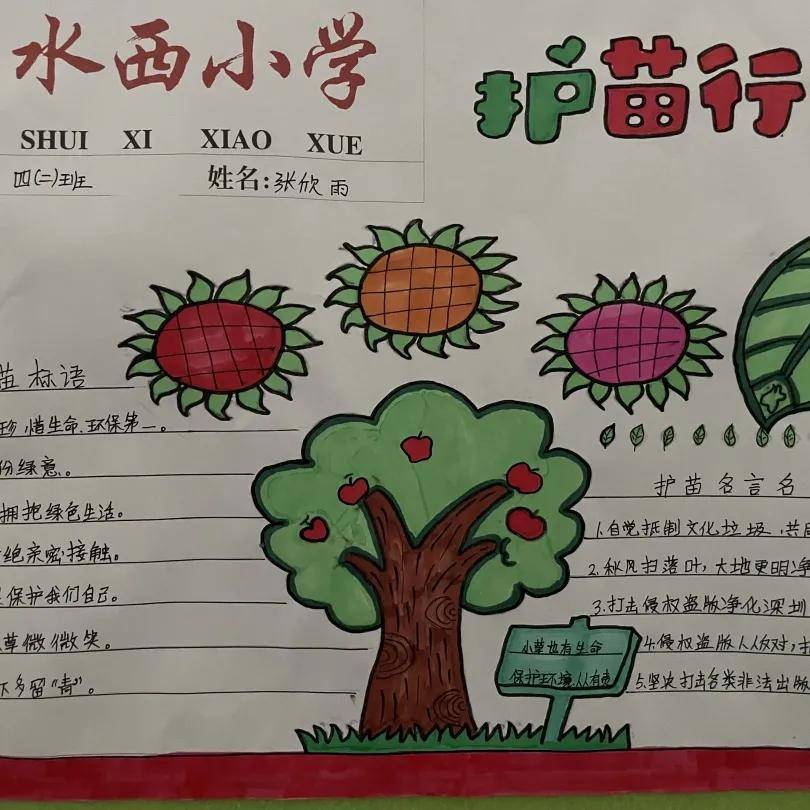 水西小学
SHUI XI XIAO XUE
四(二)班
姓名:张欣雨
护苗行
苗标语
珍惜生命.环保第一。
份绿意。
拥抱绿色生活。
绝亲密接触。
保护我们自己。
草微微笑。
下多留"青"。
护苗名言名
1.自觉抵制文化垃圾,共
2.秋风扫落叶,大地更明净
3.打击侵权盗版净化深圳
4.侵权盗版人人反对,
5.坚决打击各类非法出版
小草也有生命
保护环境人人有责